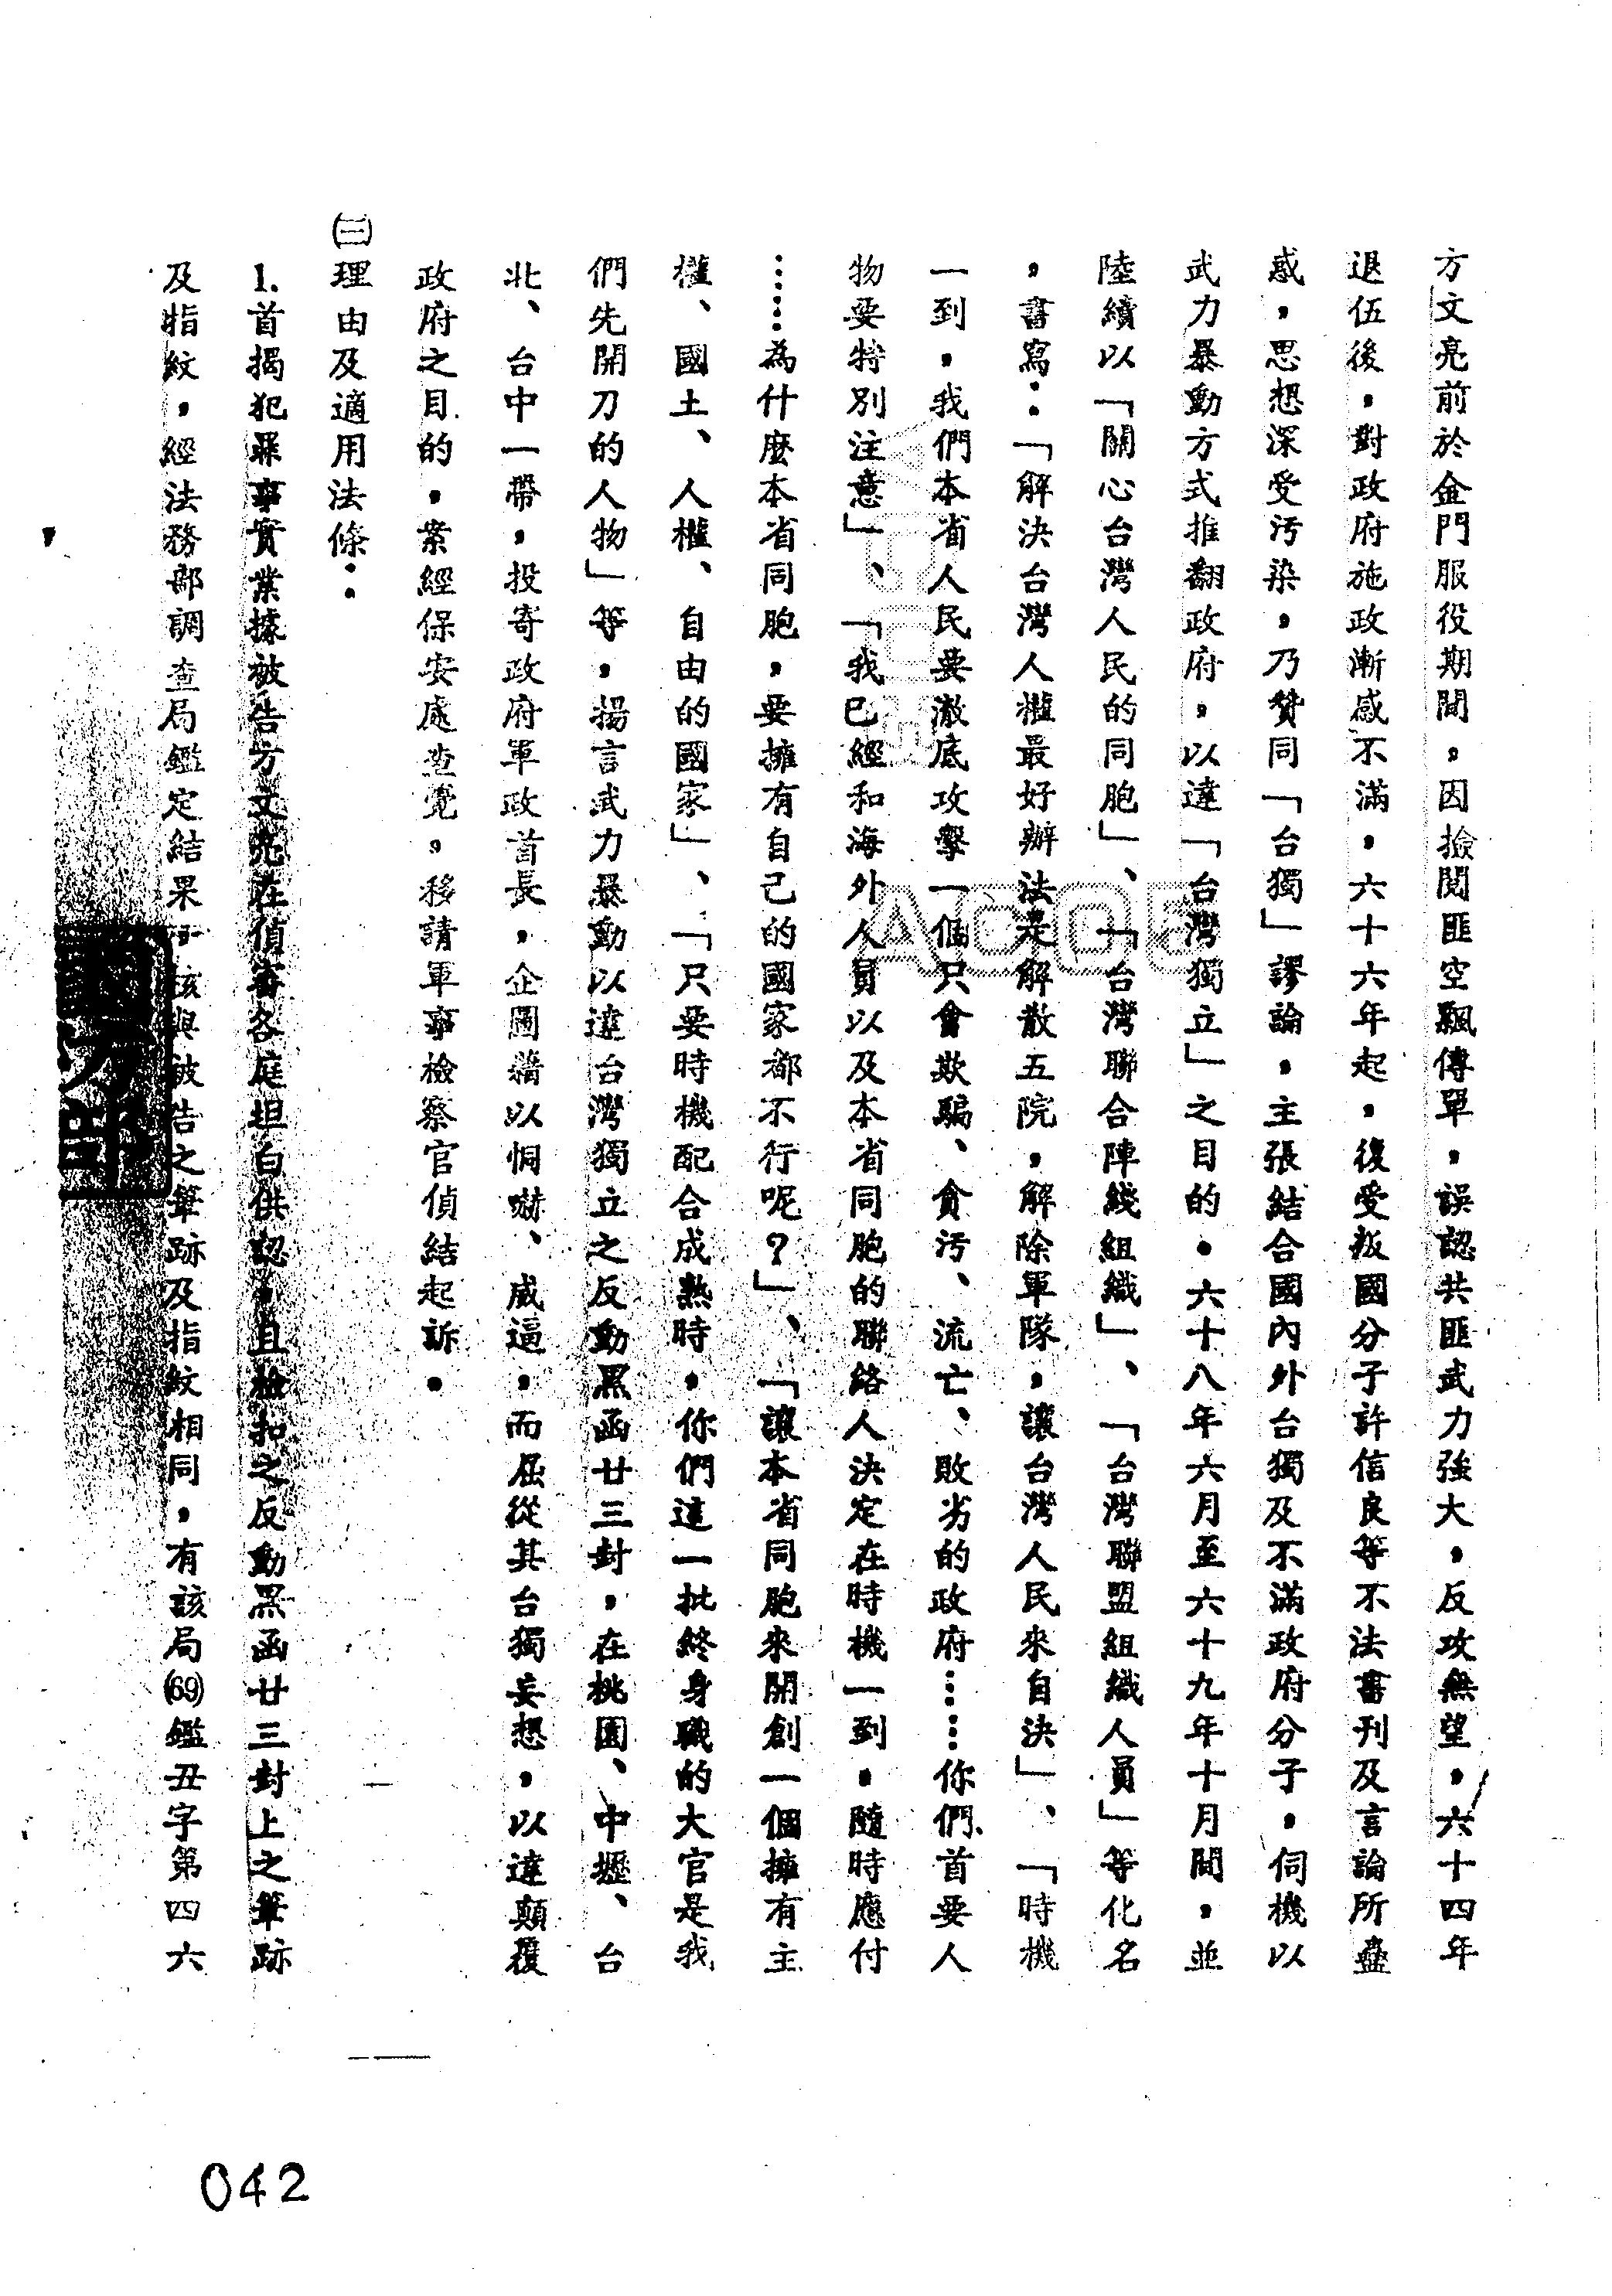 方文亮前於金門服役期間，因撿閱匪空飄傳單，誤認共匪武力強大，反攻無望，六十四年
退伍後，對政府施政漸感不滿，六十六年起，復受叛國分子許信良等不法書刊及言論所蠱
惑，思想深受污染，乃贊同「台獨」謬論，主張結合國內外台獨及不滿政府分子，伺機以
武力暴動方式推翻政府，以達「台灣獨立」之目的。六十八年六月至六十九年十月間，並
陸續以「關心台灣人民的同胞」、「台灣聯合陣綫組織」、「台灣聯盟組織人員」等化名
，書寫：「解決台灣人權最好辦法是解散五院，解除軍隊，讓台灣人民來自決」、「時機
一到，我們本省人民要澈底攻擊一個只會欺騙、貪污、流亡、敗劣的政府……你們首要人
物要特別注意」、「我已經和海外人員以及本省同胞的聯絡人決定在時機一到，隨時應付
……為什麼本省同胞，要擁有自己的國家都不行呢？」、「讓本省同胞來開創一個擁有主
權、國土、人權、自由的國家」、「只要時機配合成熟時，你們這一批終身職的大官是我
們先開刀的人物」等，揚言武力暴動以達台灣獨立之反動黑函廿三封，在桃園、中壢、台
北、台中一帶，投寄政府軍政首長，企圖藉以恫嚇、威逼，而屈從其台獨妄想，以達顛覆
政府之目的，案經保安處查覺，移請軍事檢察官偵結起訴。
㈢理由及適用法條：
1.首揭犯罪事實業據被告方文亮在偵審各庭坦白供認，且檢扣之反動黑函廿三封上之筆跡
及指紋，經法務部調查局鑑定結果該與被告之筆跡及指紋相同，有該局(69)鑑丑字第四六
國防部
ACOE
042